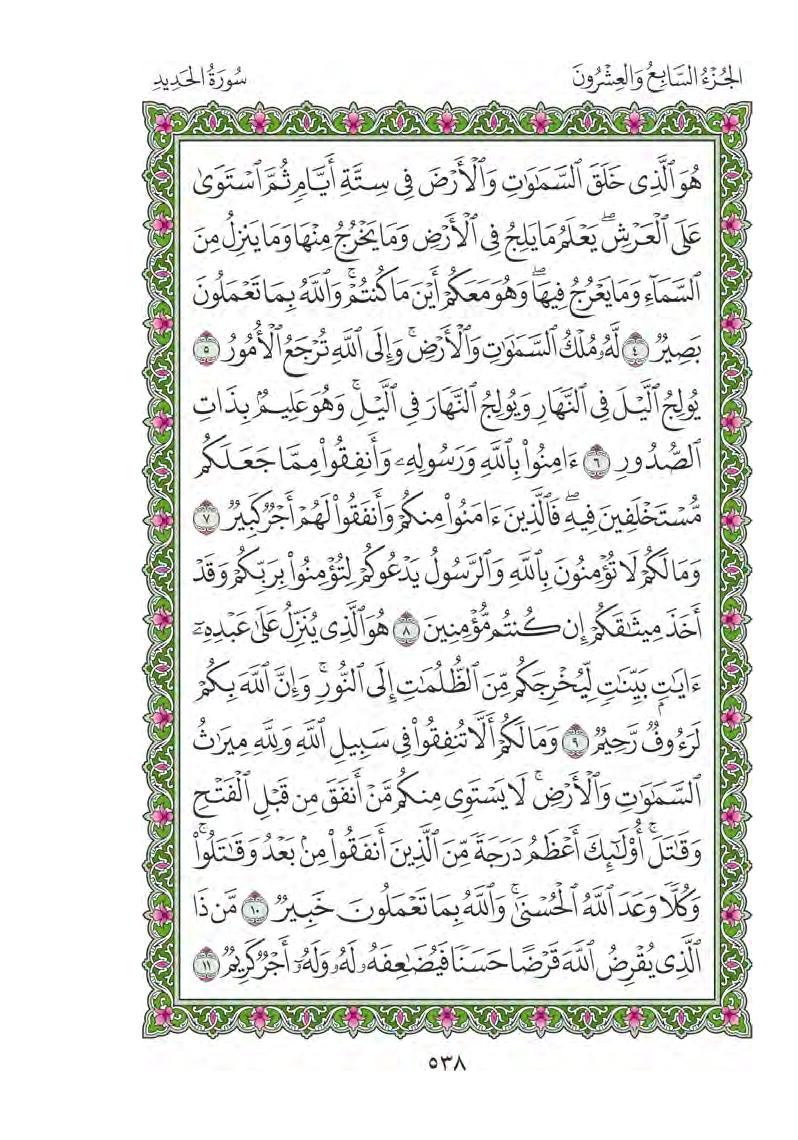 الجُزْءُ السَّابِعُ وَالعِشْرُونَ سُورَةُ الحَدِيدِ
هُوَ ٱلَّذِى خَلَقَ ٱلسَّمَٰوَٰتِ وَٱلْأَرْضَ فِى سِتَّةِ أَيَّامٍ ثُمَّ ٱسْتَوَىٰ
عَلَى ٱلْعَرْشِ ۖ يَعْلَمُ مَا يَلِجُ فِى ٱلْأَرْضِ وَمَا يَخْرُجُ مِنْهَا وَمَا يَنزِلُ مِنَ
ٱلسَّمَآءِ وَمَا يَعْرُجُ فِيهَا ۖ وَهُوَ مَعَكُمْ أَيْنَ مَا كُنتُمْ ۚ وَٱللَّهُ بِمَا تَعْمَلُونَ
بَصِيرٌ ٤ لَّهُۥ مُلْكُ ٱلسَّمَٰوَٰتِ وَٱلْأَرْضِ ۚ وَإِلَى ٱللَّهِ تُرْجَعُ ٱلْأُمُورُ ٥
يُولِجُ ٱلَّيْلَ فِى ٱلنَّهَارِ وَيُولِجُ ٱلنَّهَارَ فِى ٱلَّيْلِ ۚ وَهُوَ عَلِيمٌۢ بِذَاتِ
ٱلصُّدُورِ ٦ ءَامِنُوا۟ بِٱللَّهِ وَرَسُولِهِۦ وَأَنفِقُوا۟ مِمَّا جَعَلَكُم
مُّسْتَخْلَفِينَ فِيهِ ۖ فَٱلَّذِينَ ءَامَنُوا۟ مِنكُمْ وَأَنفَقُوا۟ لَهُمْ أَجْرٌ كَبِيرٌ ٧
وَمَا لَكُمْ لَا تُؤْمِنُونَ بِٱللَّهِ وَٱلرَّسُولُ يَدْعُوكُمْ لِتُؤْمِنُوا۟ بِرَبِّكُمْ وَقَدْ
أَخَذَ مِيثَٰقَكُمْ إِن كُنتُم مُّؤْمِنِينَ ٨ هُوَ ٱلَّذِى يُنَزِّلُ عَلَىٰ عَبْدِهِۦٓ
ءَايَٰتٍۭ بَيِّنَٰتٍ لِّيُخْرِجَكُم مِّنَ ٱلظُّلُمَٰتِ إِلَى ٱلنُّورِ ۚ وَإِنَّ ٱللَّهَ بِكُمْ
لَرَءُوفٌ رَّحِيمٌ ٩ وَمَا لَكُمْ أَلَّا تُنفِقُوا۟ فِى سَبِيلِ ٱللَّهِ وَلِلَّهِ مِيرَٰثُ
ٱلسَّمَٰوَٰتِ وَٱلْأَرْضِ ۚ لَا يَسْتَوِى مِنكُم مَّنْ أَنفَقَ مِن قَبْلِ ٱلْفَتْحِ
وَقَٰتَلَ ۚ أُو۟لَٰٓئِكَ أَعْظَمُ دَرَجَةً مِّنَ ٱلَّذِينَ أَنفَقُوا۟ مِنۢ بَعْدُ وَقَٰتَلُوا۟ ۚ
وَكُلًّا وَعَدَ ٱللَّهُ ٱلْحُسْنَىٰ ۚ وَٱللَّهُ بِمَا تَعْمَلُونَ خَبِيرٌ ١٠ مَّن ذَا
ٱلَّذِى يُقْرِضُ ٱللَّهَ قَرْضًا حَسَنًا فَيُضَٰعِفَهُۥ لَهُۥ وَلَهُۥٓ أَجْرٌ كَرِيمٌ ١١
٥٣٨